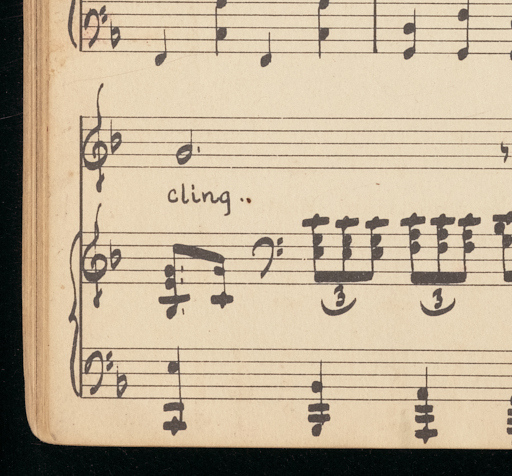 cling..
3 3